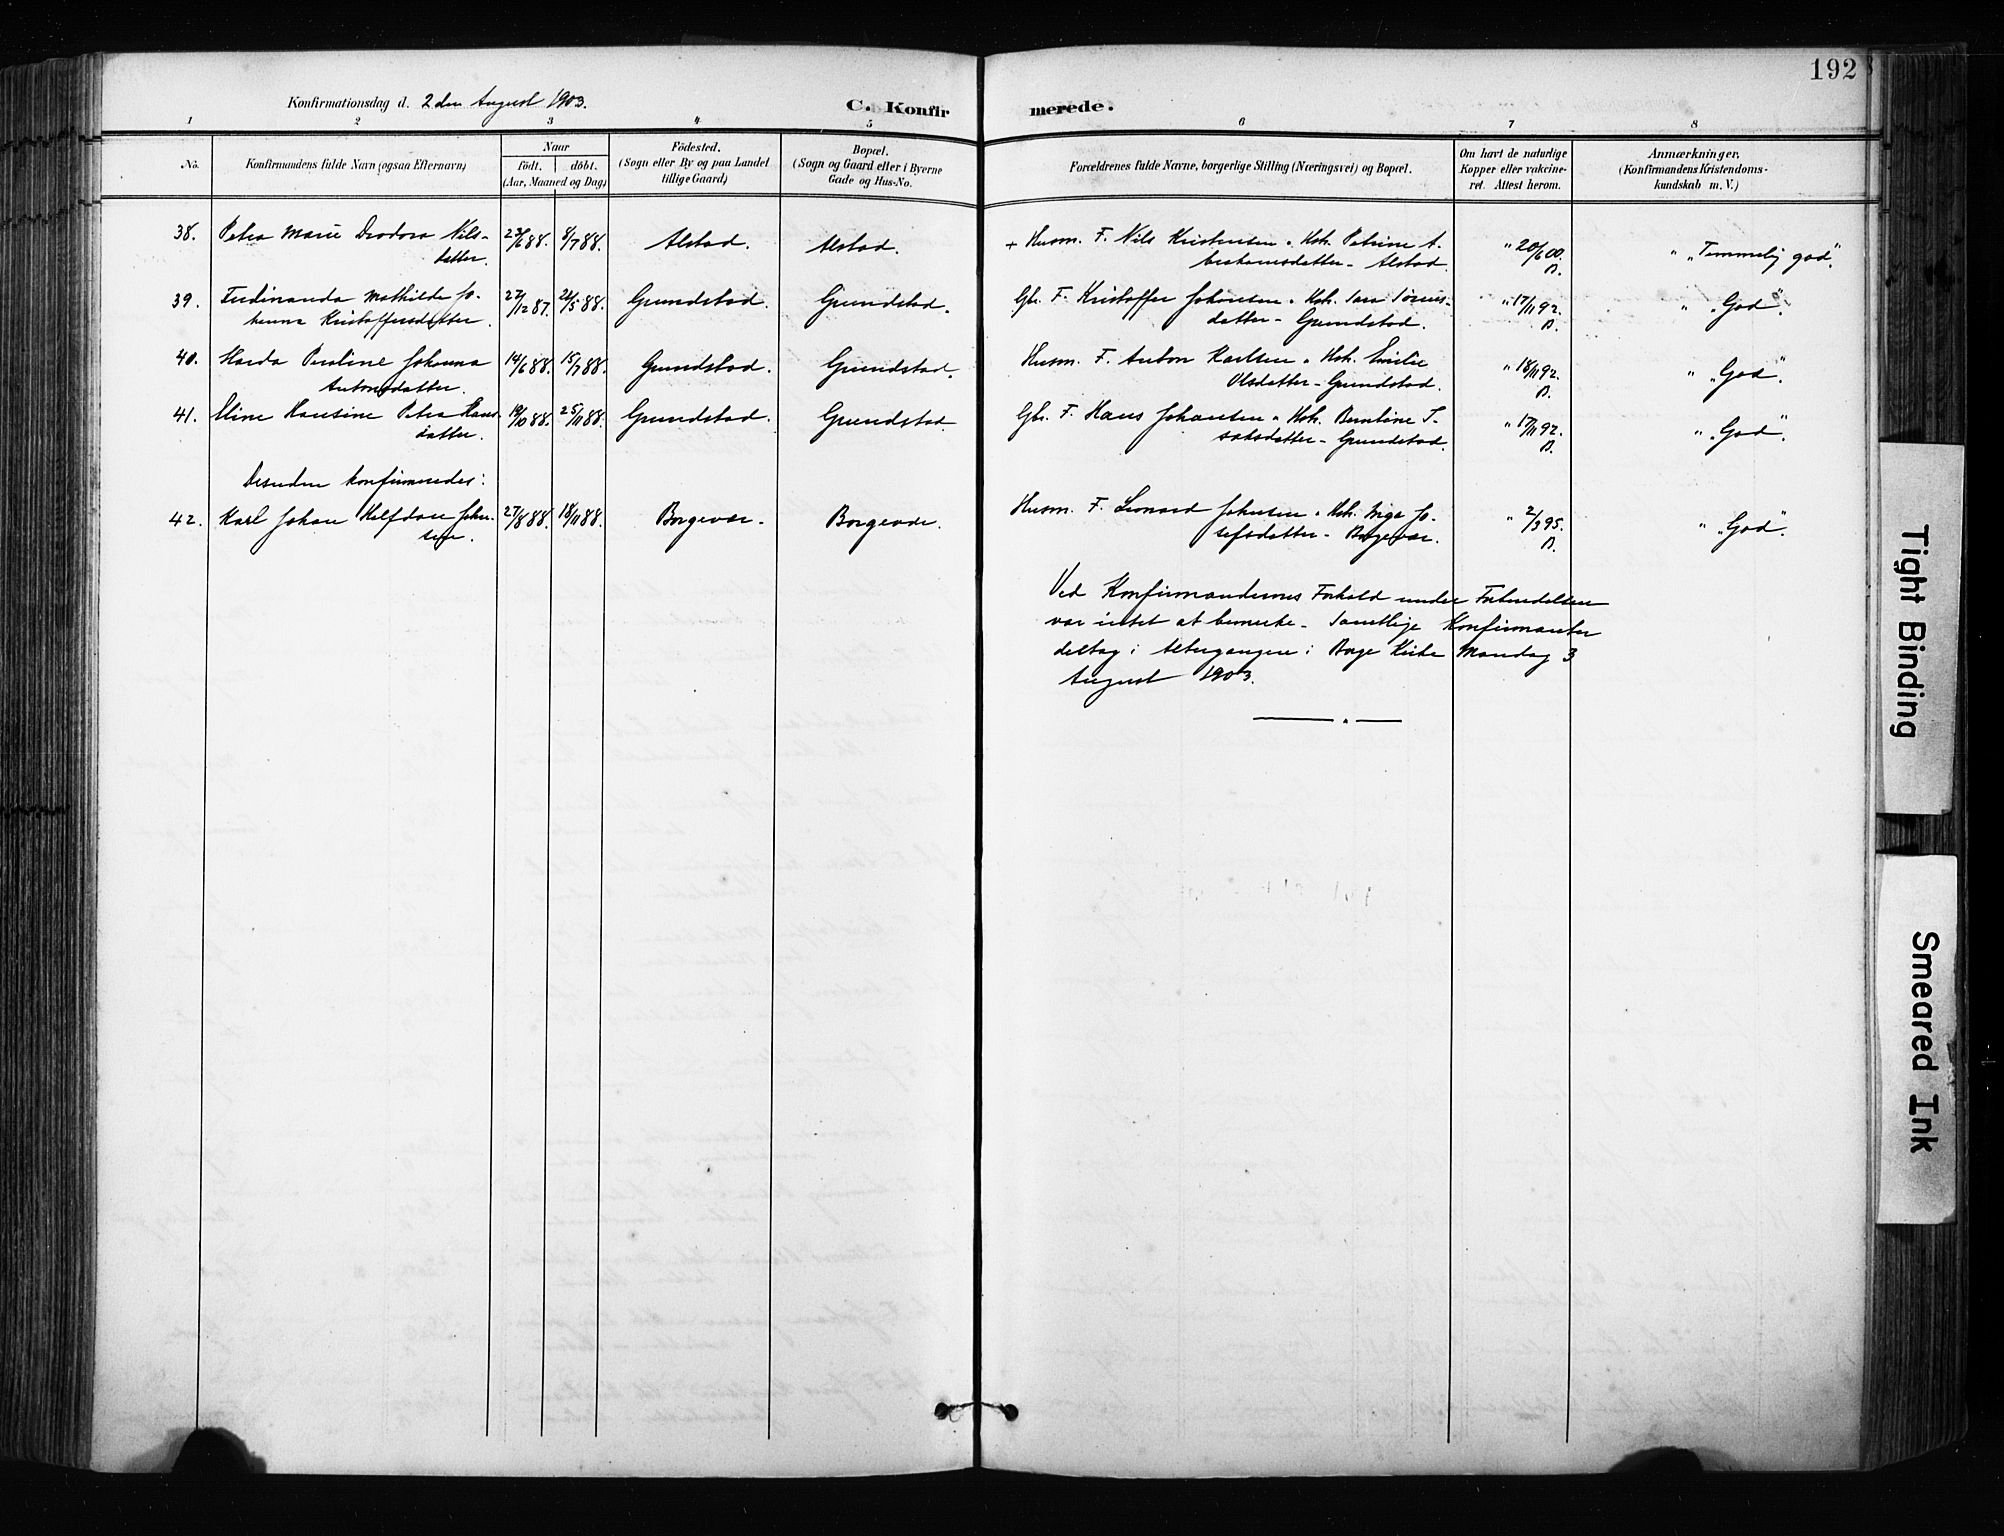 192
Konfirmationsdag d. 2den August 1903.
C. Konfirmerede.
1 2 3 4 5 6 7 8
No.
Konfirmandens fulde Navn (ogsaa Efternavn)
Naar
födt. döbt.
(Aar, Maaned og Dag)
Födested.
(Sogn eller By og paa Landet
tillige Gaard)
Bopæl.
(Sogn og Gaard eller i Byerne
Gade og Hus-No.
Forældrenes fulde Navne, borgerlige Stilling (Næringsvei) og Bopæl.
Om havt de naturlige
Kopper eller vakcine-
ret. Attest herom.
Anmærkninger.
(Konfirmandens Kristendoms-
kundskab m. V.)
38. Petra Marie Deodora Nils- 23/6 88. 8/7 88. Alstad. Alstad. + Husm. F. Nils Kristensen o. Hst. Petrine A- " 20/6 00. " "Temmelig god".
datter. benhamsdatter - Alstad. B.
39. Ferdinanda Mathilde Jo- 27/12 87. 21/5 88. Grundstad. Grundstad. Gbr. F. Kristoffer Johansen o. Hst. Sara Sørens- " 17/11 92. " "God".
hanna Kristoffersdatter. datter - Grundstad. B.
40. Harda Pauline Johanna 14/6 88. 15/7 88. Grundstad. Grundstad. Husm. F. Anton Karlsen o. Hst. Emilie " 18/11 92. " "God".
Antonsdatter. Olsdatter - Grundstad. B.
41. Stine Hansine Petra Hans- 19/10 88. 25/11 88. Grundstad. Grundstad. Gbr. F. Hans Johansen o. Hst. Berntine I- " 17/11 92. " "God".
datter. saksdatter - Grundstad. B.
Desuden konfirmeredes:
42. Karl Johan Halfdan Johan- 27/8 88. 18/11 88. Borgevær. Borgevær. Husm. F. Leonard Johansen o. Hst. Inga Jo- " 2/3 95. " "God".
sen. sefsdatter - Borgevær. B.
Ved Konfirmandernes Forhold under Forberedelsen
var intet at bemerke - Samtlige Konfirmanter
deltog i Altergangen i Borge Kirke Mandag 3
August 1903.
Tight Binding
Smeared Ink